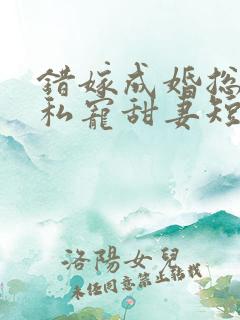 錯嫁成婚总
私寵甜妻短
洛陽女兒
未经同意禁止转载